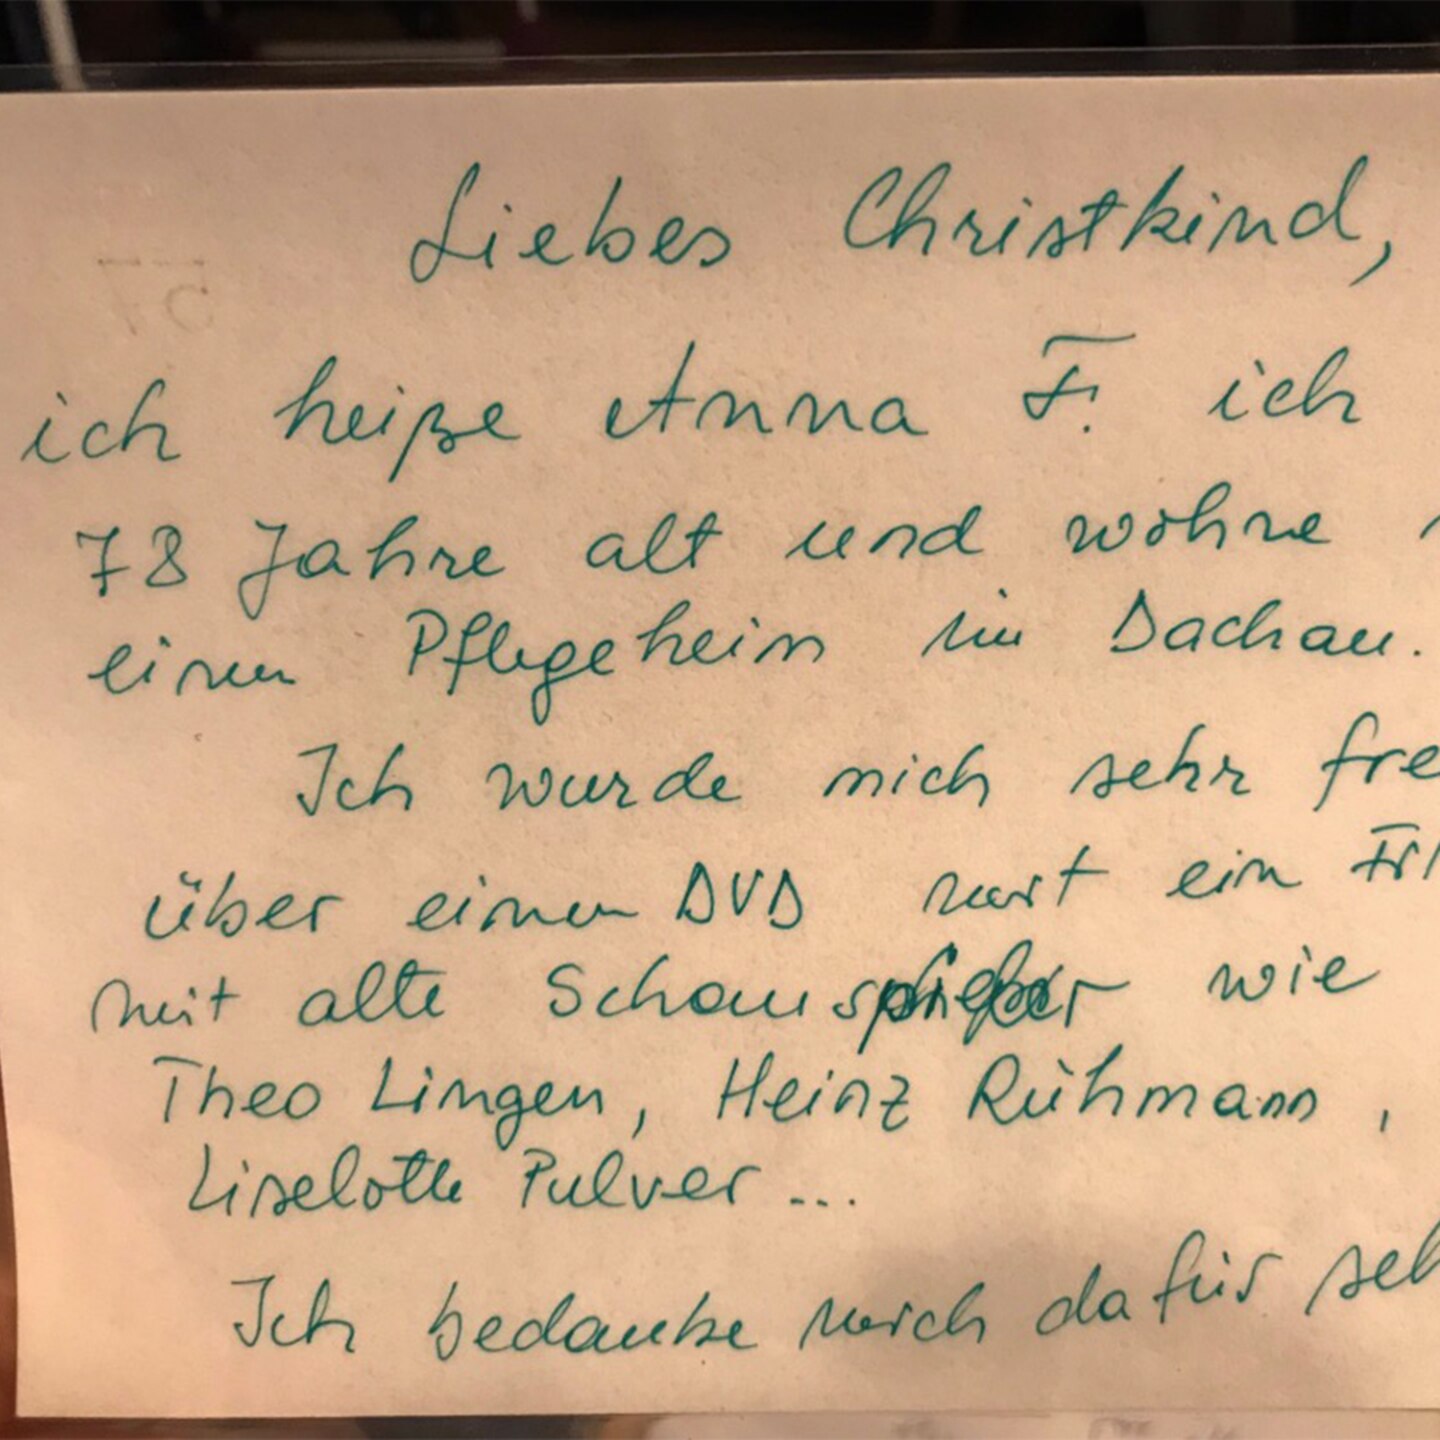 Liebes Christkind,
ich heiße Anna F. ich
78 Jahre alt und wohne
einen Pflegeheim in Dachau.
Ich wurde mich sehr fre
über einen DVD mit ein
mit alte Schauspieler wie
Theo Lingen, Heinz Rühmann,
Liselotte Pulver ...
Ich bedanke mich dafür seh